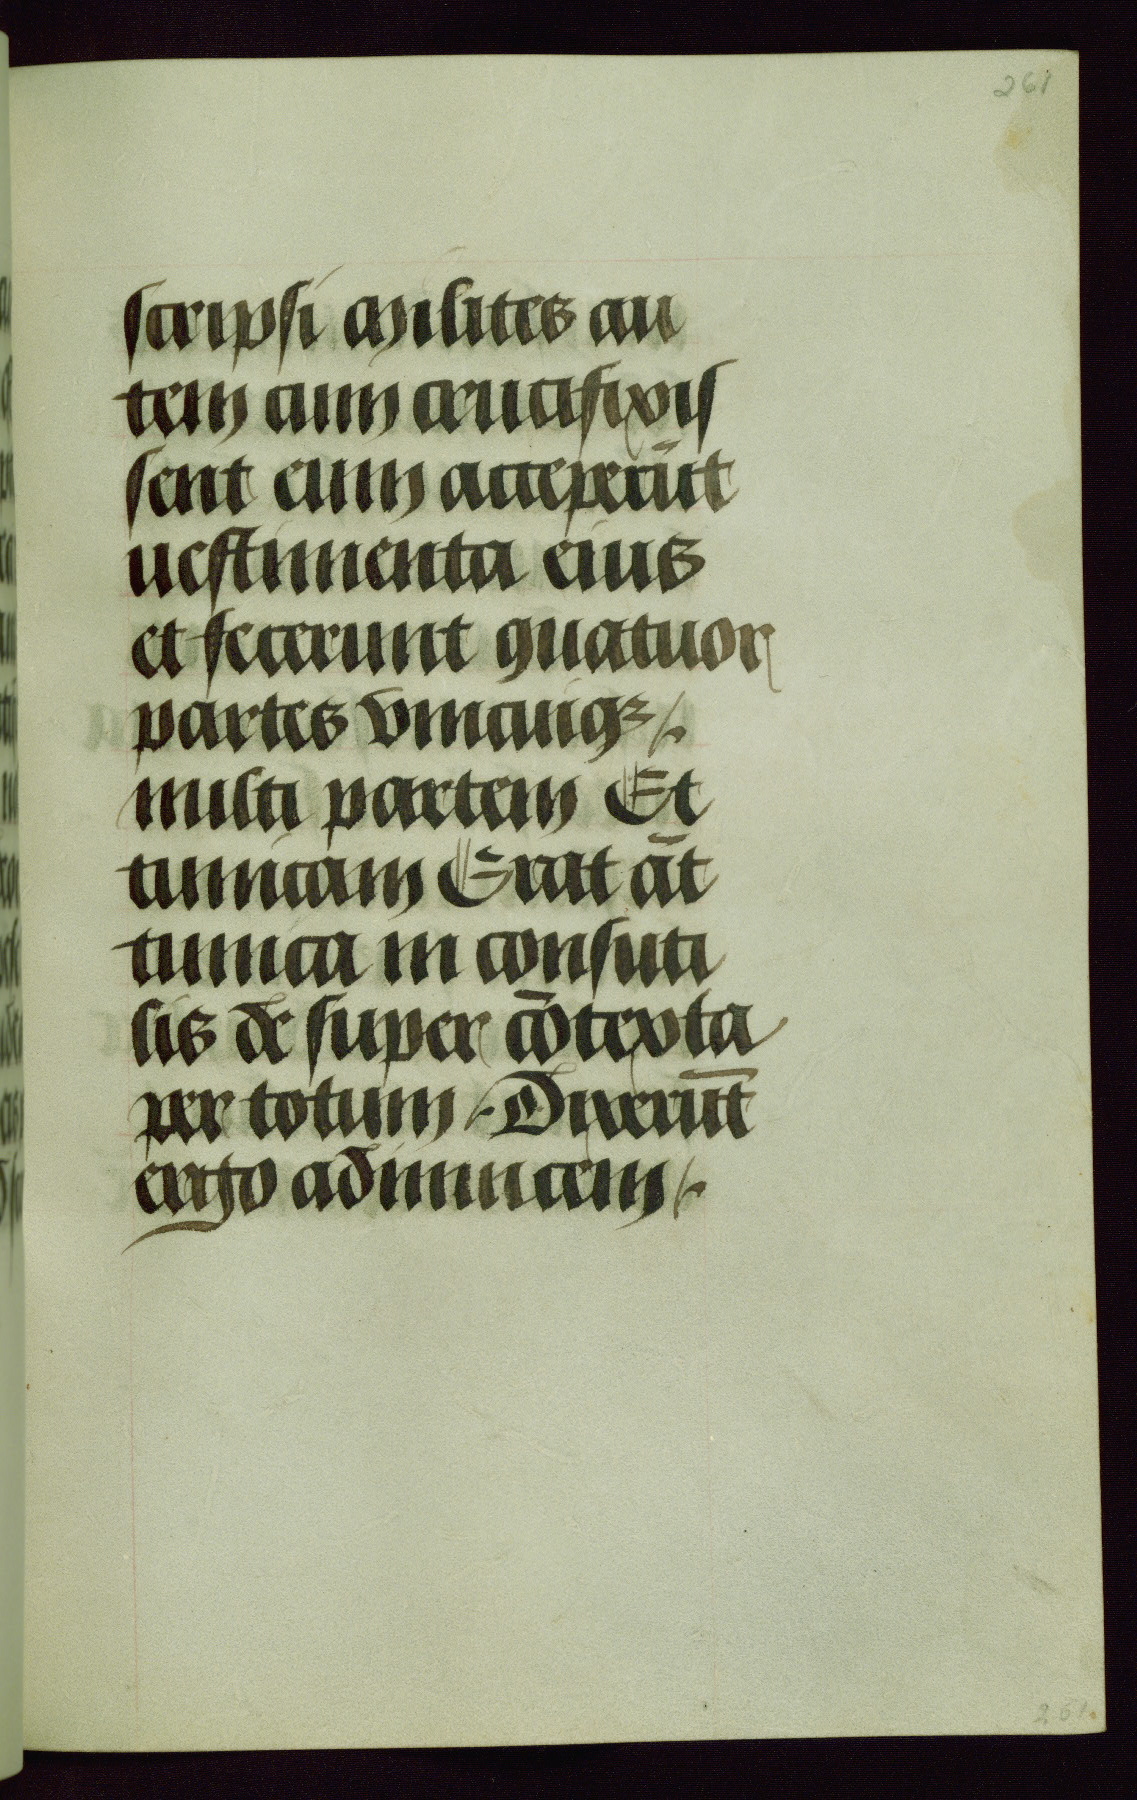 261
scripsi Milites au
tem cum crucifixis
sent eum acceperūt
uestimenta eius
et fecerunt quatuor
partes vnicuiqꝫ /.
militi partem Et
tunicam Erat āt
tunica in consuti
lis de super cōtexta
per totum /. Dixerūt
ergo adinuicem /.
261.